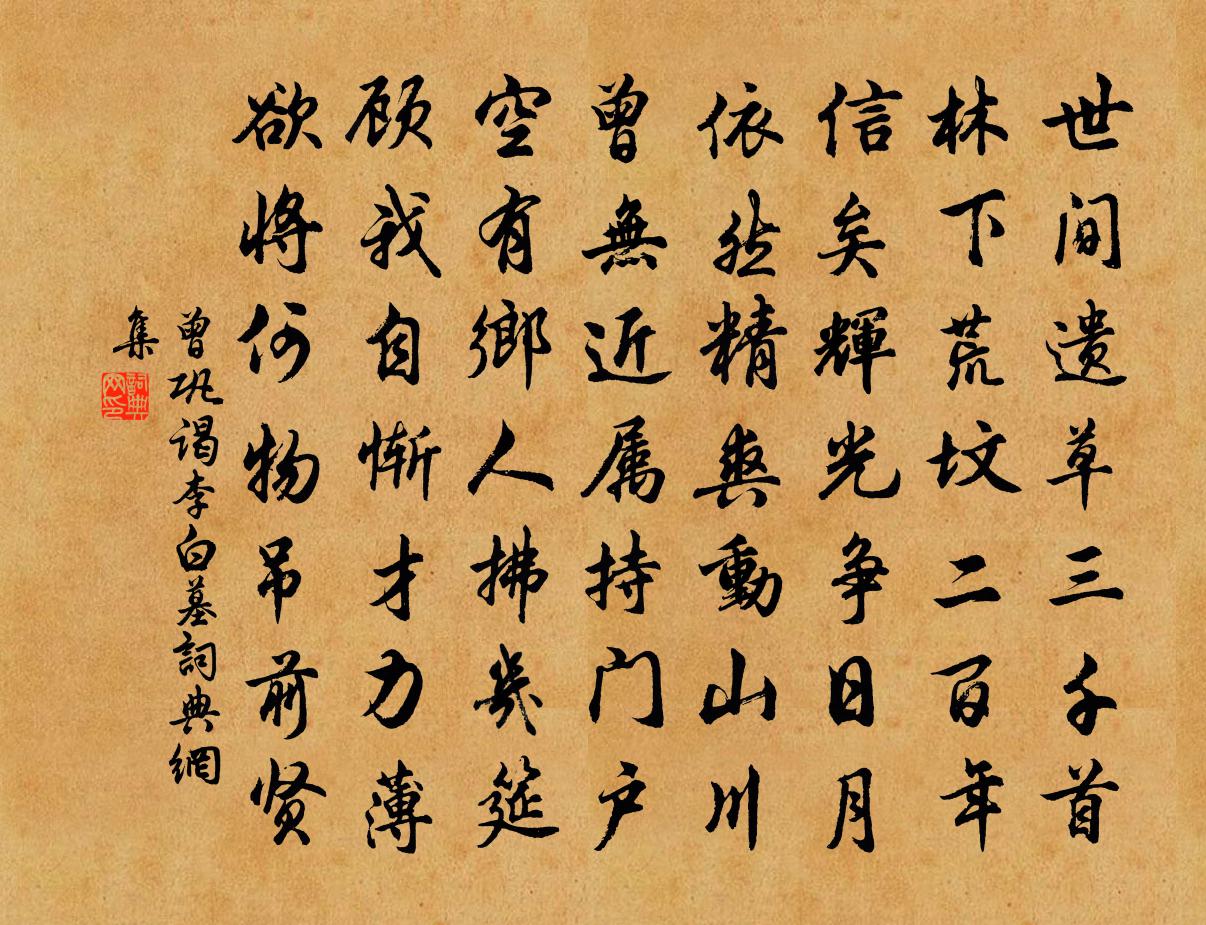 世间遗草三千首
林下荒坟二百年
信矣輝光争日月
依然精爽動山川
曾無近属持门户
空有鄉人拂几筵
顾我自惭才力薄
欲将何物吊前贤
曾巩谒李白墓詞典網
集
詞典
网印